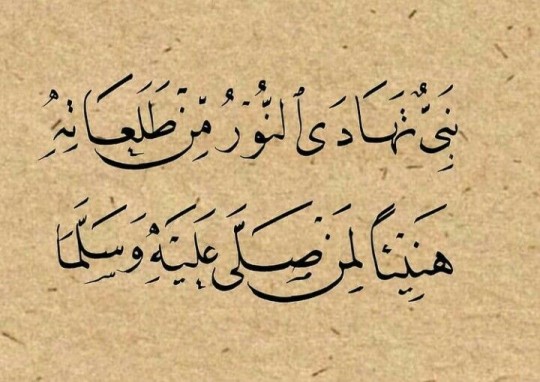 نَبِيٌّ تَهَادَى ٱلنُّوْرُ مِّنْ طَلَعَاتِهِ
هَنِيْئاً لِمَنْ صَلَّى عَلَيْهِ وَسَلَّمَا